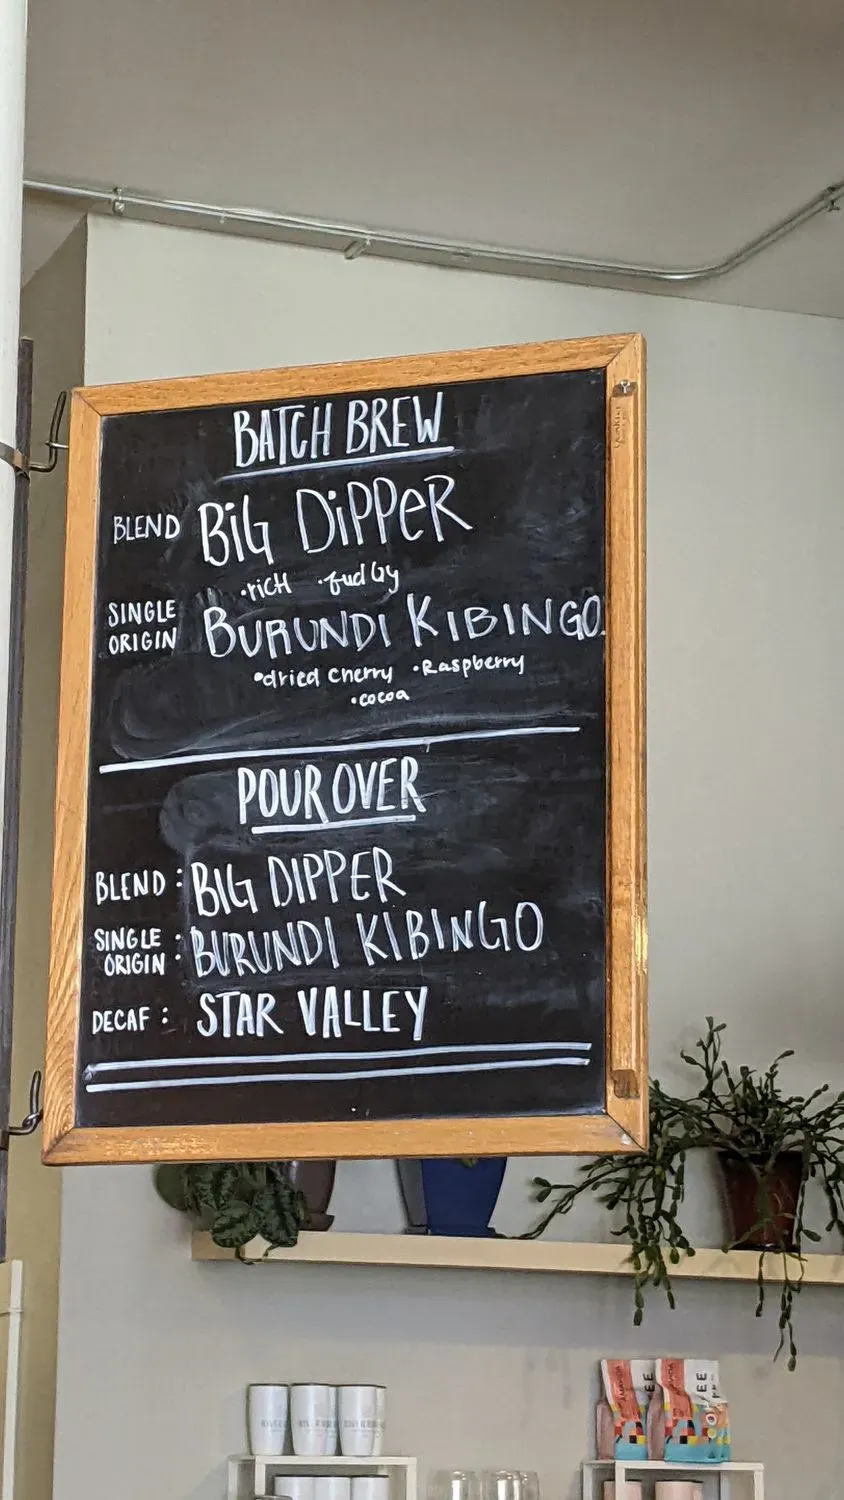 BATCH BREW
BLEND BiG DiPPeR
•riCH •fudGy
SINGLE ORIGIN BURUNDI KIBINGO.
•dried cherry •Raspberry
•cocoa
POUR OVER
BLEND: BIG DIPPER
SINGLE ORIGIN: BURUNDI KIBINGO
DECAF: STAR VALLEY